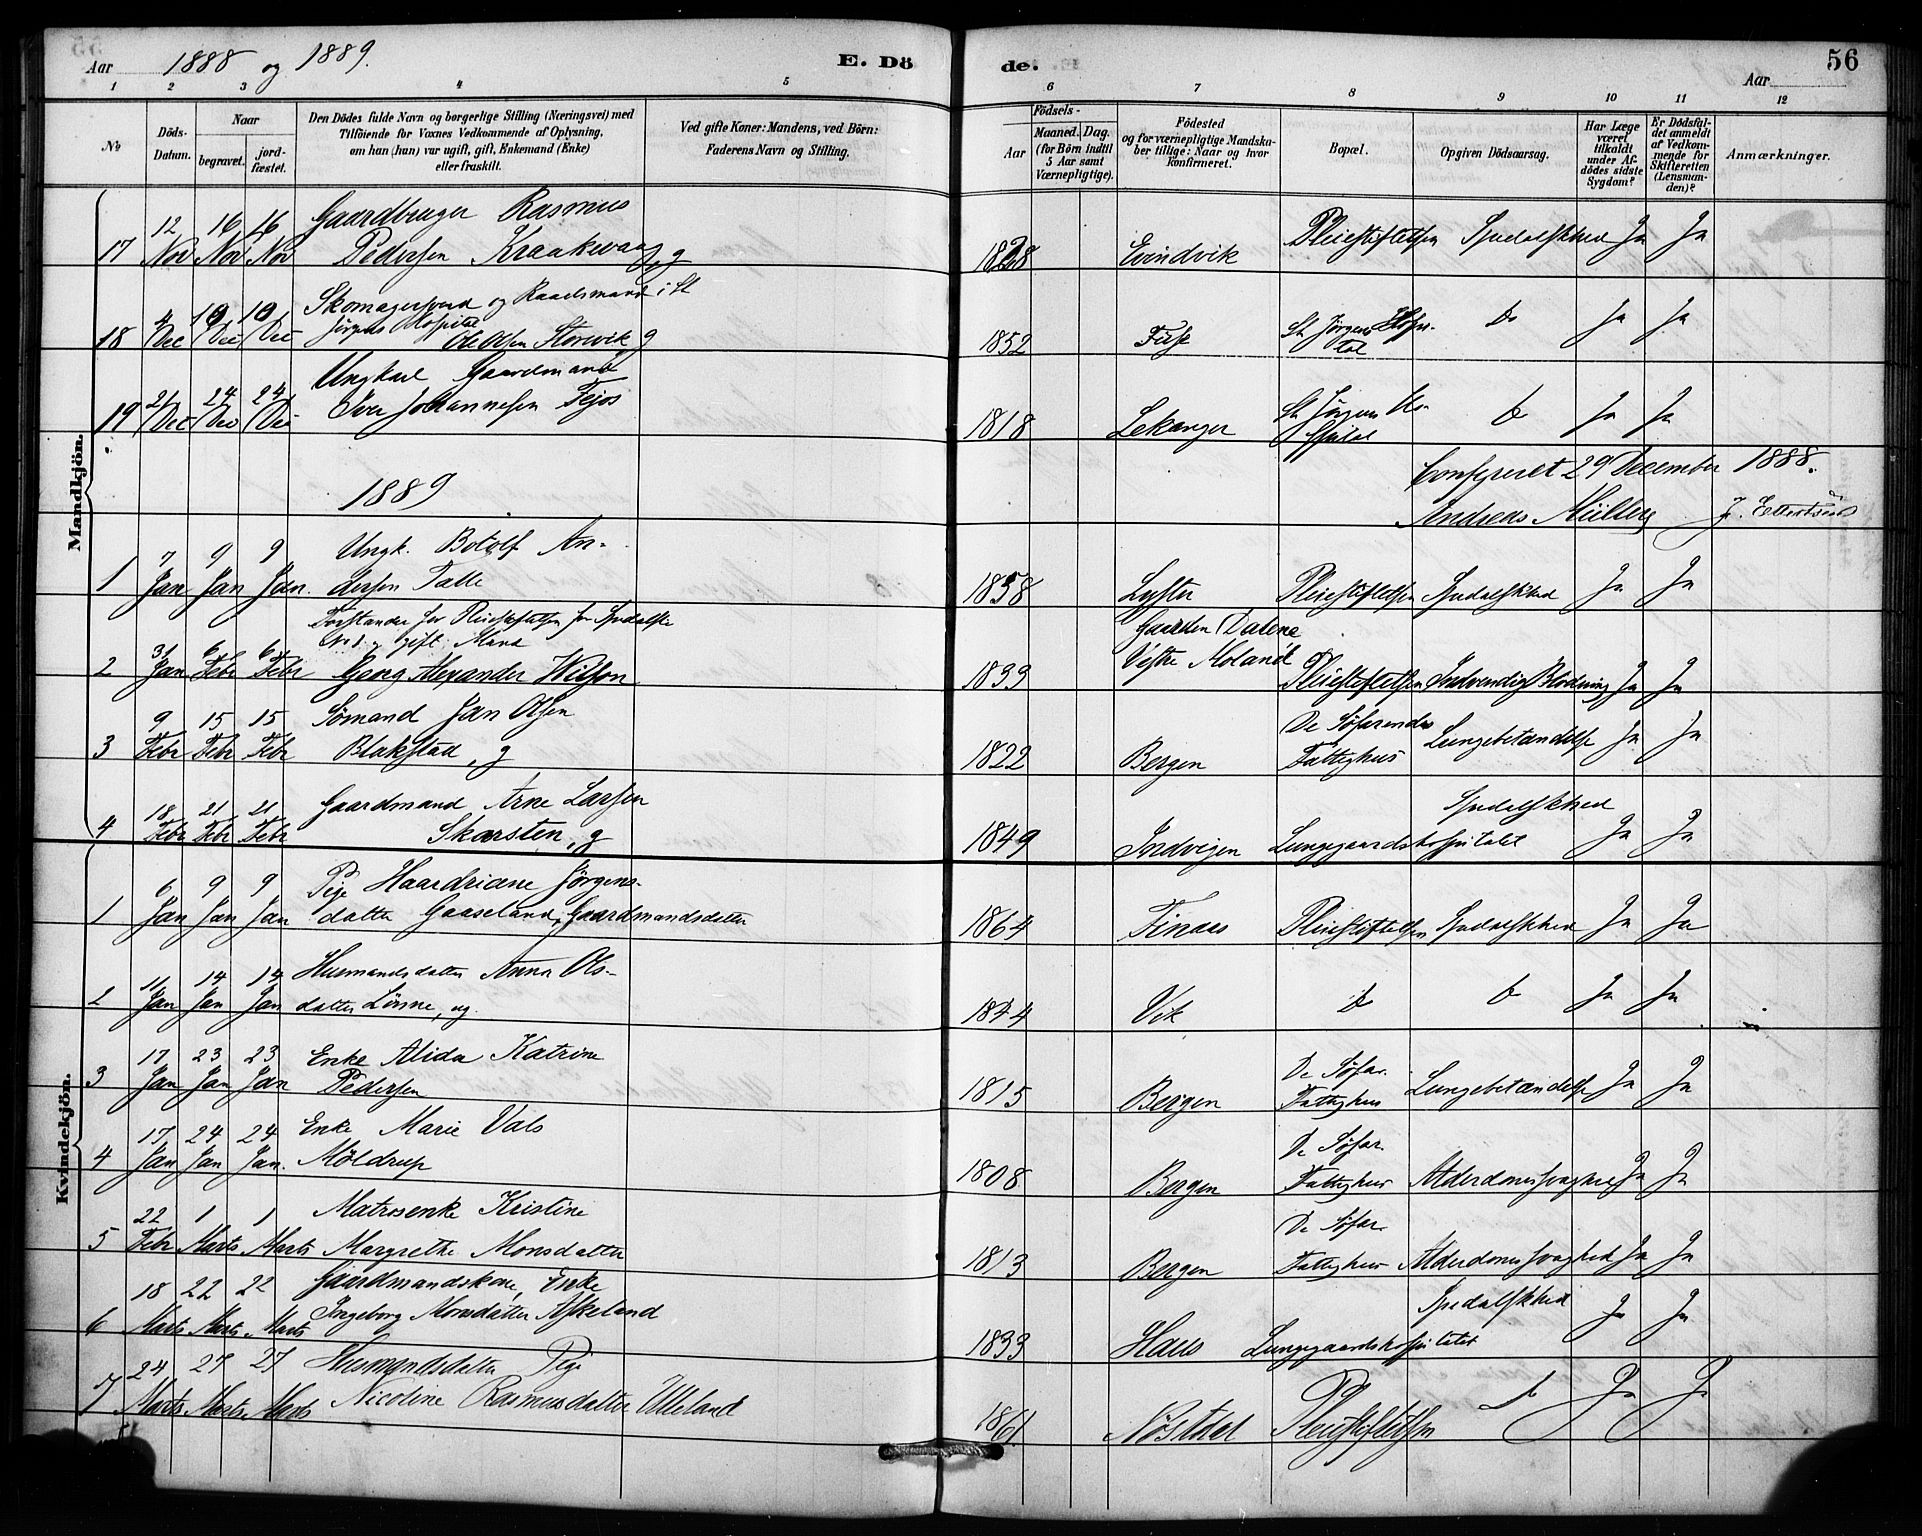 Aar 1888 og 1889.
E. Dö
de.
Aar
56
1 2 3 4 5 6 7 8 9 10 11 12
№
Döds-
Datum.
Naar
begravet.
jord-
fæstet.
Den Dödes fulde Navn og borgerlige Stilling (Næringsvei) med
Tilföiende for Voxnes Vedkommende af Oplysning,
om han (hun) var ugift, gift, Enkemand (Enke)
eller fraskilt.
Ved gifte Koner: Mandens, ved Börn:
Faderens Navn og Stilling.
Födsels-
Aar
Maaned. Dag.
(for Börn indtil
5 Aar samt
Værnepligtige).
Födested
og for værnepligtige Mandska-
ber tillige: Naar og hvor
konfirmeret.
Bopæl.
Opgiven Dödsaarsag.
Har Læge
været
tilkaldt
under Af-
dödes sidste
Sygdom?
Er Dødsfal-
det anmeldt
af Vedkom-
mende for
Skifteretten
(Lensman-
den)?
Anmærkninger.
Mandkjön.
12 16 16 Gaardbruger Rasmus
17 Nov Nov Nov Pedersen Kraakevaag, g 1828 Evindvik Pleiestiftelsen Spedalskhed Ja Ja
4 10 10 Skomagersvend og Raadsmand i St
Jørgens Hospital
18 Dec Dec Dec Ole Olsen Storvik g 1852 Fuse St Jørgens Hospi-
tal Do Ja Ja
21 24 24 Ungkarl Gaardmand
19 Dec Dec Dec Iver Johannesen Fejos 1818 Lekanger St Jørgens Ho-
spital do Ja Ja
1889
Confereret 29 December 1888.
Andreas Müller
7 9 9 Ungk. Botolf An-
1 Jan Jan Jan. dersen Talle 1858 Lyster Pleiestiftelsen Spedalskhed Ja Ja
Forstander for Pleiestiftelsen for Spedalske
No 1, gift Mand
31 6 6
2 Jan Febr Febr Georg Alexander Wilson 1833 Gaarden Dalene
Vestre Moland Pleiestiftelsen Indvendig Blødning Ja Ja
9 15 15 Sømand Jan Olsen
3 Febr Febr Febr Blakstad, g 1822 Bergen De Søfarendes
Fattighus Lungebetændelse Ja Ja
18 21 21 Gaardmand Arne Larsen
4 Febr Febr Febr Skarsten, g 1849 Indvigen Lungegaardshospitalet Spedalskhed Ja Ja
Kvindekjön.
6 9 9 Pige Haardriane Jørgens-
1 Jan Jan Jan datter Gaaseland, Gaardmandsdatter 1864 Finaas Pleiestiftelsen Spedalskhed Ja Ja
11 14 14 Husmandsdatter Anna Ols-
2 Jan Jan Jan datter Lönne, ug. 1844 Vik do do Ja Ja
17 23 23 Enke Alida Katrine
3 Jan Jan Jan Pedersen 1815 Bergen De Søfar.
Fattighus Lungebetændelse Ja Ja
17 24 24 Enke Marie Vals
4 Jan Jan Jan. Møldrup 1808 Bergen De Søfar.
Fattighus Alderdomssvaghed Ja Ja
22 1 1 Matrosenke Kristine
5 Febr Marts Marts Margrethe Monsdatter 1813 Bergen De Søfar.
Fattighus Alderdomssvaghed Ja Ja
18 22 22 Gaardmandskone, Enke
6 Marts Marts Marts Ingeborg Monsdatter Askeland 1833 Haus Lungegaardshospitalet Spedalskhed Ja Ja
24 27 27 Husmandsdatter Pige
7 Marts Marts Marts Nicoline Rasmusdatter Ulleland 1861 Nøstdal Pleiestiftelsen do Ja Ja